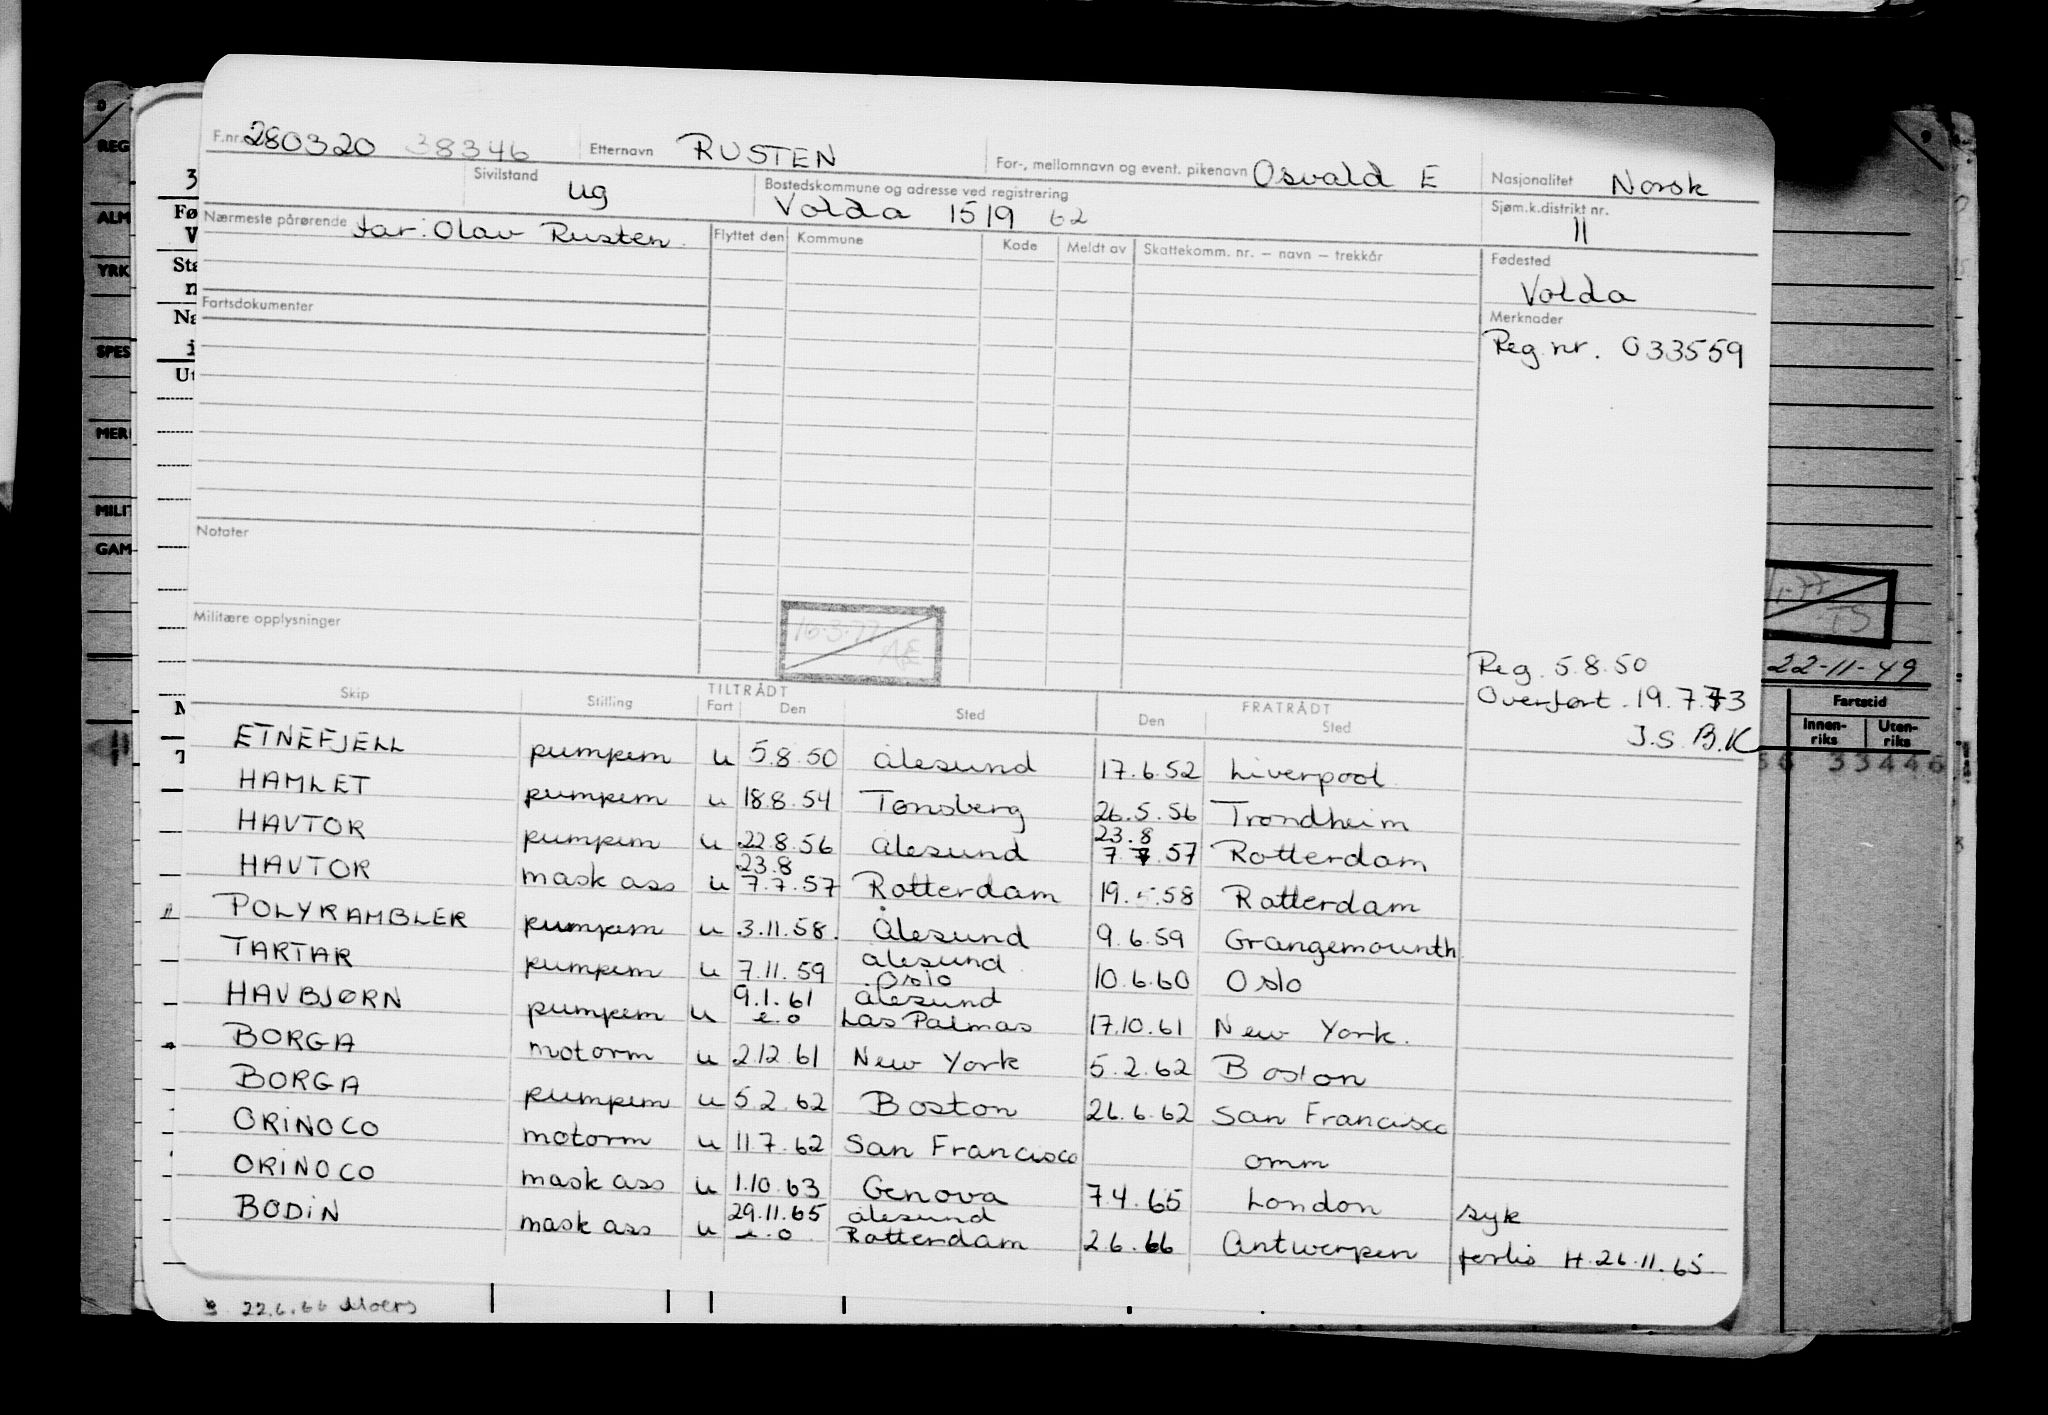 F.nr. 280320 38346 Etternavn RUSTEN For-, mellomnavn og event. pikenavn Osvald E Nasjonalitet Norsk
Sivilstand ug Bostedskommune og adresse ved registrering Volda 1519 62 Sjøm.k.distrikt nr. 11
Nærmeste pårørende far: Olav Rusten. Flyttet den Kommune Kode Meldt av Skattekomm. nr. – navn – trekkår Fødested
Volda
Fartsdokumenter Merknader
Reg.nr. 033559
Notater
Militære opplysninger
16.3.77
Reg. 5.8.50
Overført. 19.7.73
J.S. B.K
Skip Stilling TILTRÅDT Fart Den Sted FRATRÅDT Den Sted
ETNEFJELL pumpem u 5.8.50 Ålesund 17.6.52 Liverpool
HAMLET pumpem u 18.8.54 Tønsberg 26.5.56 Trondheim
HAVTOR pumpem u 22.8.56 Ålesund 23.8 7.7.57 Rotterdam
HAVTOR mask ass u 23.8 7.7.57 Rotterdam 19. .58 Rotterdam
POLYRAMBLER pumpem u 3.11.58. Ålesund 9.6.59 Grangemounth
TARTAR pumpem u 7.11.59 Ålesund Oslo 10.6.60 Oslo
HAVBJØRN pumpem u 9.1.61 e.o Ålesund Las Palmas 17.10.61 New York.
BORGA motorm u 2.12.61 New York 5.2.62 Boston
BORGA pumpem u 5.2.62 Boston 26.6.62 San Francisco
ORINOCO motorm u 11.7.62 San Francisco omm
ORINOCO mask ass u 1.10.63 Genova 7.4.65 London syk
BODIN mask ass u 29.11.65 e.o. Ålesund Rotterdam 2.6.66 Antwerpen forlis H.26.11.65
22.6.66 Moers
REG
ALM
YRK
SPES
MER
MILI
GAM
Fø
Sta
Na
Ut
22-11-49
Fartstid
Innen-riks Uten-riks
33446